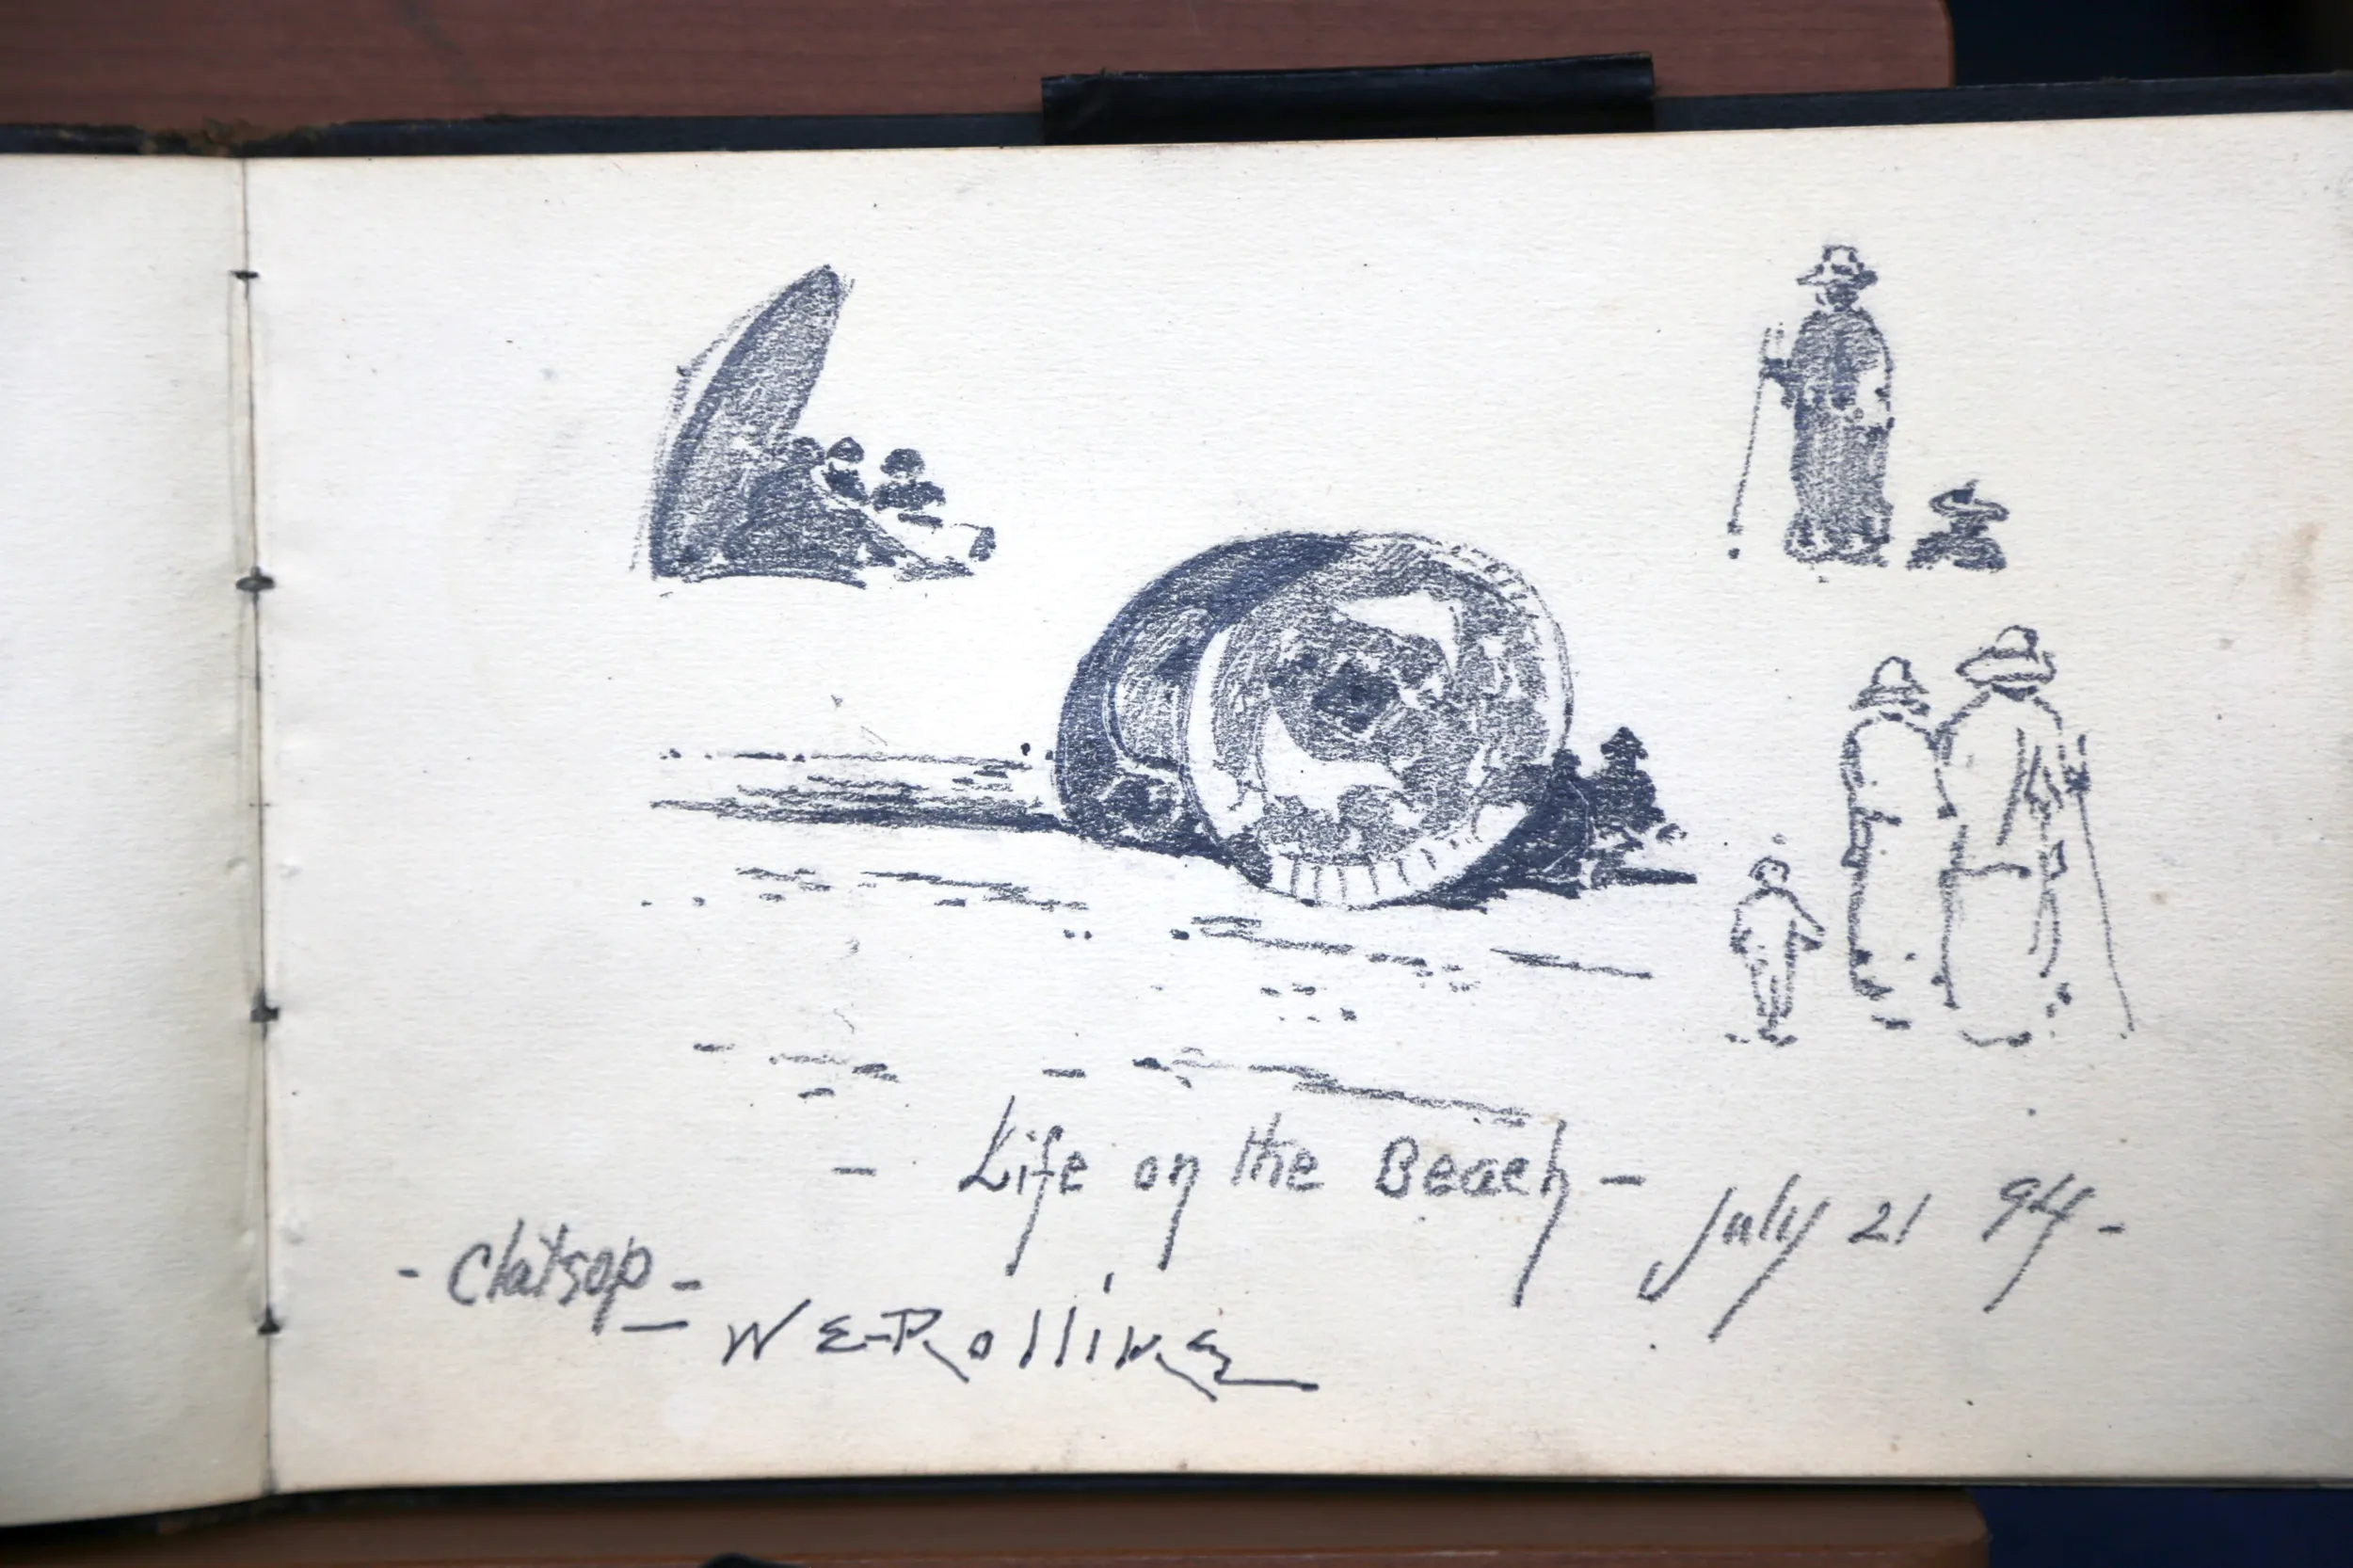 - Life on the Beach -
July 21 94 -
- Clatsop -
- W E Rollins